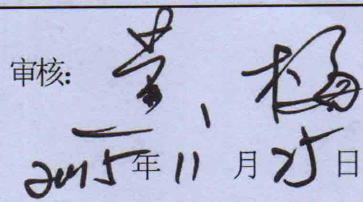 审核:
2015年11月25日